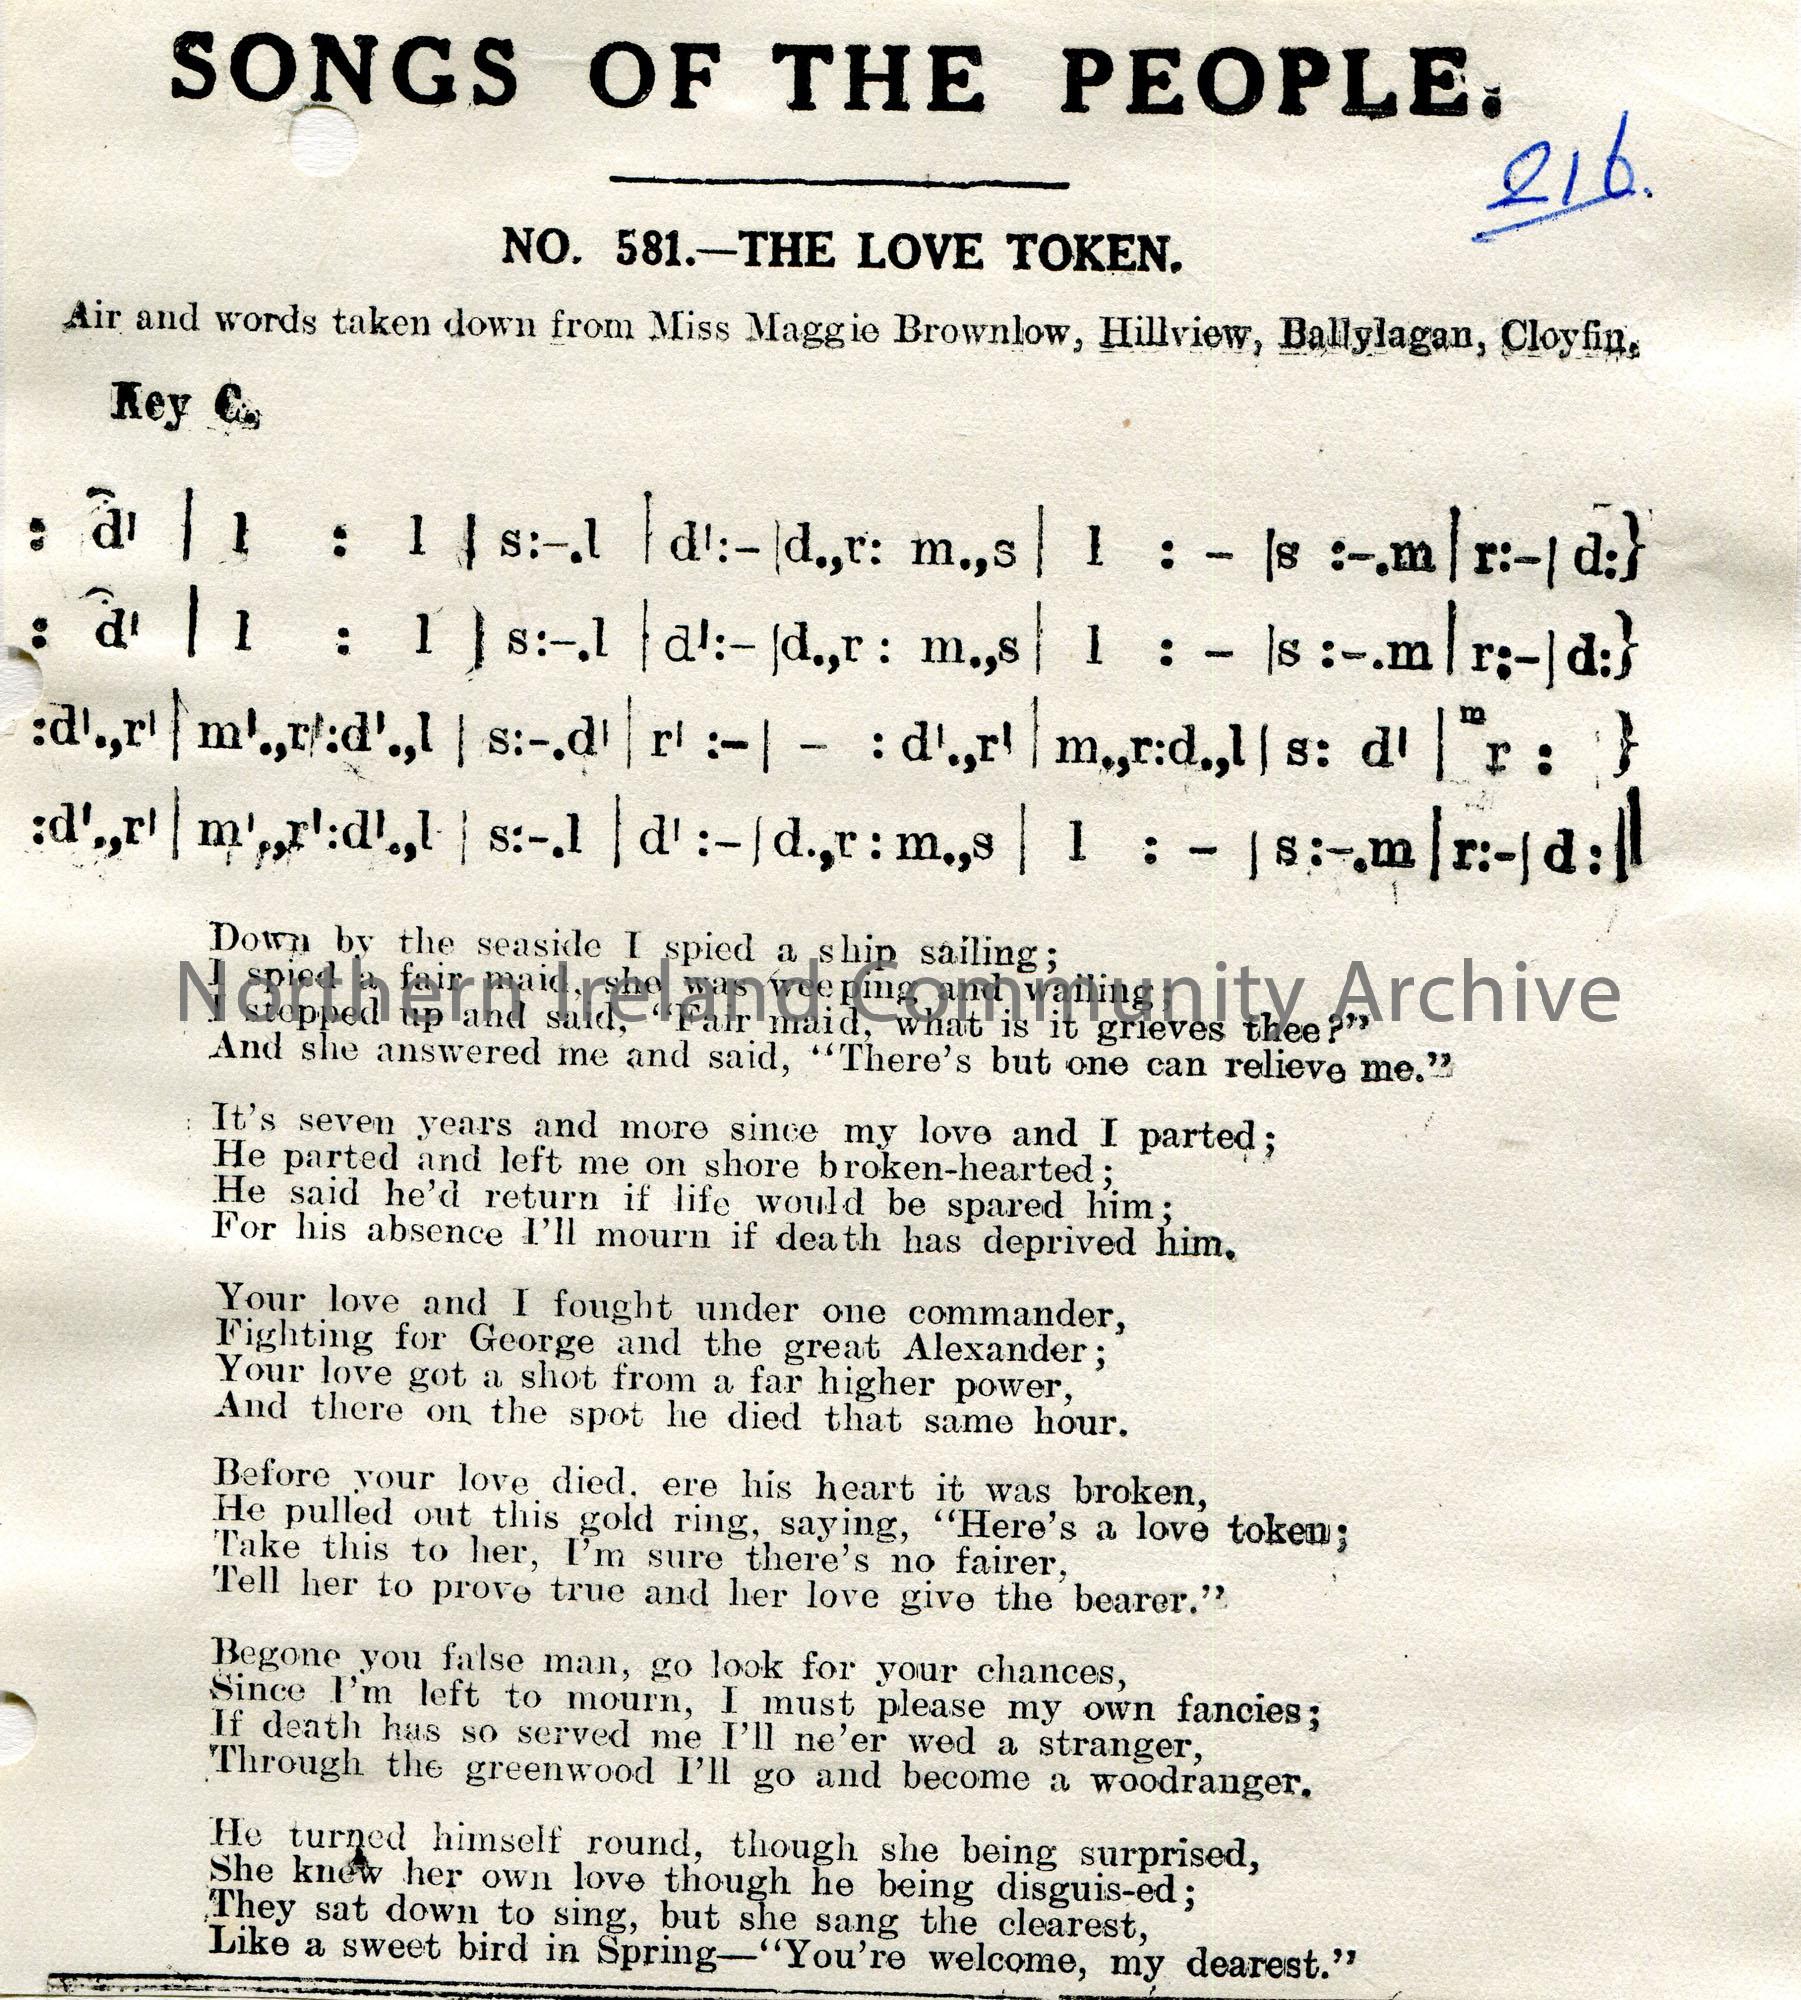 SONGS OF THE PEOPLE.
216.
NO. 581.—THE LOVE TOKEN.
Air and words taken down from Miss Maggie Brownlow, Hillview, Ballylagan, Cloyfin.
Key C.
: d' | l : l | s:-.l | d':-|d.,r: m.,s | l : - |s :-.m | r:-| d:}
: d' | l : l | s:-.l | d':-|d.,r : m.,s | l : - |s :-.m | r:-| d:}
:d'.,r' | m'.,r':d'.,l | s:-.d' | r' :-| - : d'.,r' | m.,r:d.,l | s: d' | m r : }
:d'.,r' | m'.,r':d'.,l | s:-.l | d' :-| d.,r : m.,s | l : - | s:-.m | r:-| d :||
Down by the seaside I spied a ship sailing;
I spied a fair maid, she was weeping and wailing;
Northern Ireland Community Archive
I stepped up and said, “Fair maid, what is it grieves thee?”
And she answered me and said, “There's but one can relieve me.”
It's seven years and more since my love and I parted;
He parted and left me on shore broken-hearted;
He said he'd return if life would be spared him;
For his absence I'll mourn if death has deprived him.
Your love and I fought under one commander,
Fighting for George and the great Alexander;
Your love got a shot from a far higher power,
And there on the spot he died that same hour.
Before your love died. ere his heart it was broken,
He pulled out this gold ring, saying, “Here's a love token;
Take this to her, I'm sure there's no fairer,
Tell her to prove true and her love give the bearer.”
Begone you false man, go look for your chances,
Since I'm left to mourn, I must please my own fancies;
If death has so served me I'll ne'er wed a stranger,
Through the greenwood I'll go and become a woodranger.
He turned himself round, though she being surprised,
She knew her own love though he being disguis-ed;
They sat down to sing, but she sang the clearest,
Like a sweet bird in Spring—“You're welcome, my dearest.”